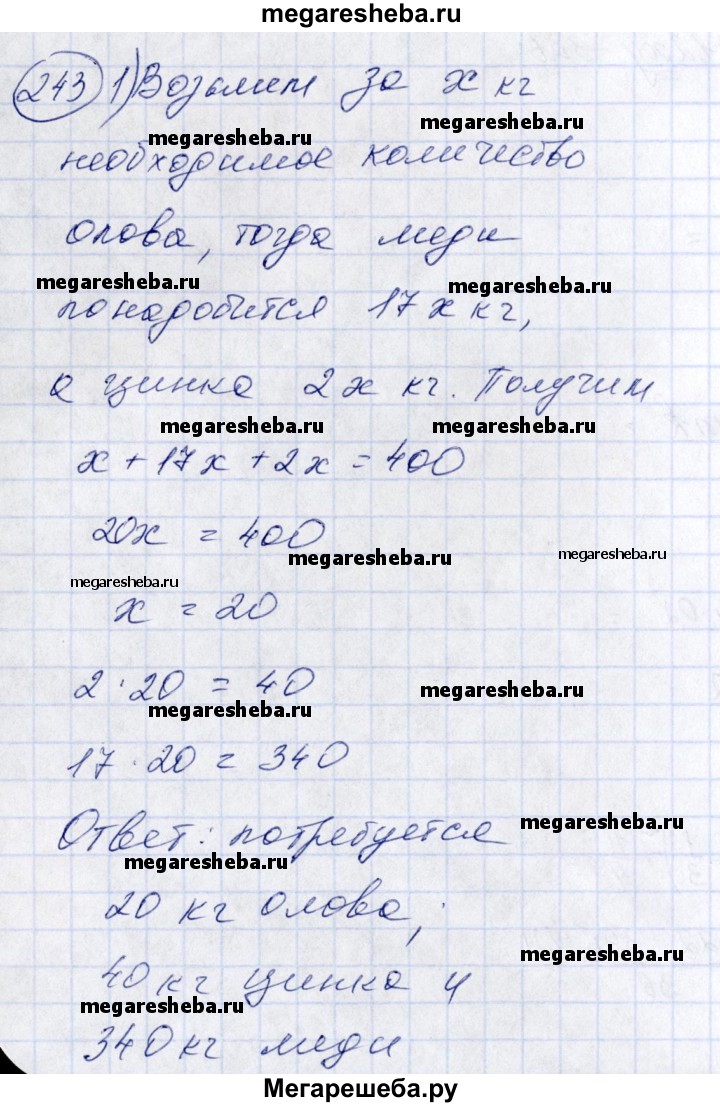 megaresheba.ru
243 1) Возьмем за x кг
megaresheba.ru megaresheba.ru
необходимое количество
олова, тогда меди
megaresheba.ru megaresheba.ru
понадобится 17x кг,
а цинка 2x кг. Получим
megaresheba.ru megaresheba.ru
x + 17x + 2x = 400
20x = 400
megaresheba.ru megaresheba.ru
megaresheba.ru
x = 20
2 · 20 = 40
megaresheba.ru
megaresheba.ru
17 · 20 = 340
Ответ: потребуется
megaresheba.ru
megaresheba.ru
20 кг олова,
40 кг цинка и
megaresheba.ru
megaresheba.ru
340 кг меди
Мегарешеба.ру